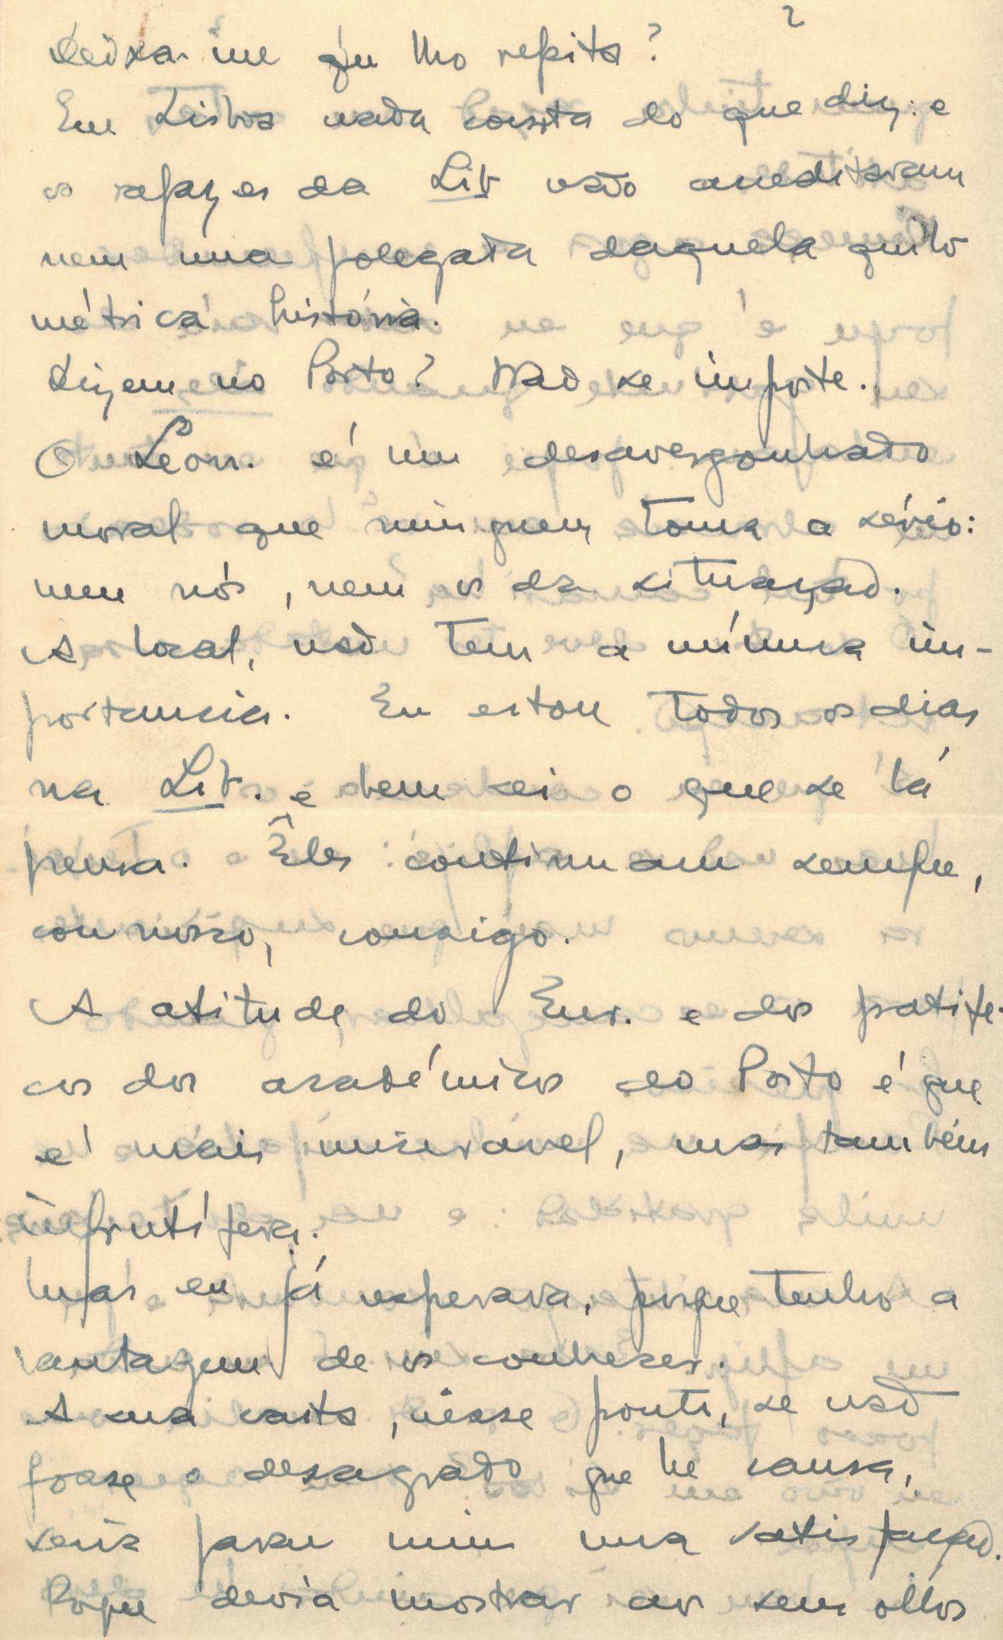 2
Deixa-me qu lho repita?
Em Lisboa nada consta do que diz: e
os rapazes da Lib não acreditaram
nem uma polegada daquela quilo
métrica história.
Dizem no Porto? Não se importe.
O Leon. é um desavergonhado
moral que ninguem toma a sério:
nem nós, nem os da situação.
A local, não tem a mínima im-
portancia. Eu estou todos os dias
na Lib. e bem sei o que se lá
pensa. Êles continuam sempre,
connosco, consigo.
A atitude do Eur. e dos patife-
cos dos académicos do Porto é que
é mais miserável, mas tambem
infrutífera.
Mas eu já esperava, porque tenho a
vantagem de os conhecer.
A sua carta, nesse ponto, se não
fosse o desagrado que lhe causa,
seria para mim uma satisfação.
Porque devia mostrar aos seus olhos